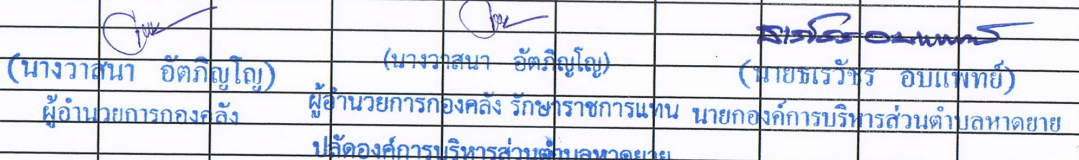 (นางวาสนา อัตภิญโญ)
ผู้อำนวยการกองคลัง
(นางวาสนา อัตภิญโญ)
ผู้อำนวยการกองคลัง รักษาราชการแทน
ปลัดองค์การบริหารส่วนตำบลหาดยาย
(นายธเรวัชร อบแพทย์)
นายกองค์การบริหารส่วนตำบลหาดยาย